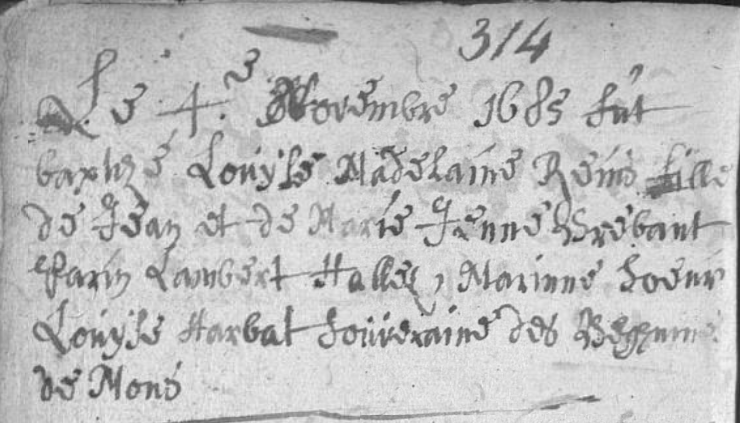 314
Le 4.e Novembre 1685 fut
baptizé Loüyse Madelaine Remÿ fille
de Jean et de Marie Jenne Brebant
Parin Lambert Hallez, Marinne soeur
Loüyse Harbat souveraine des Beghine
de Mons